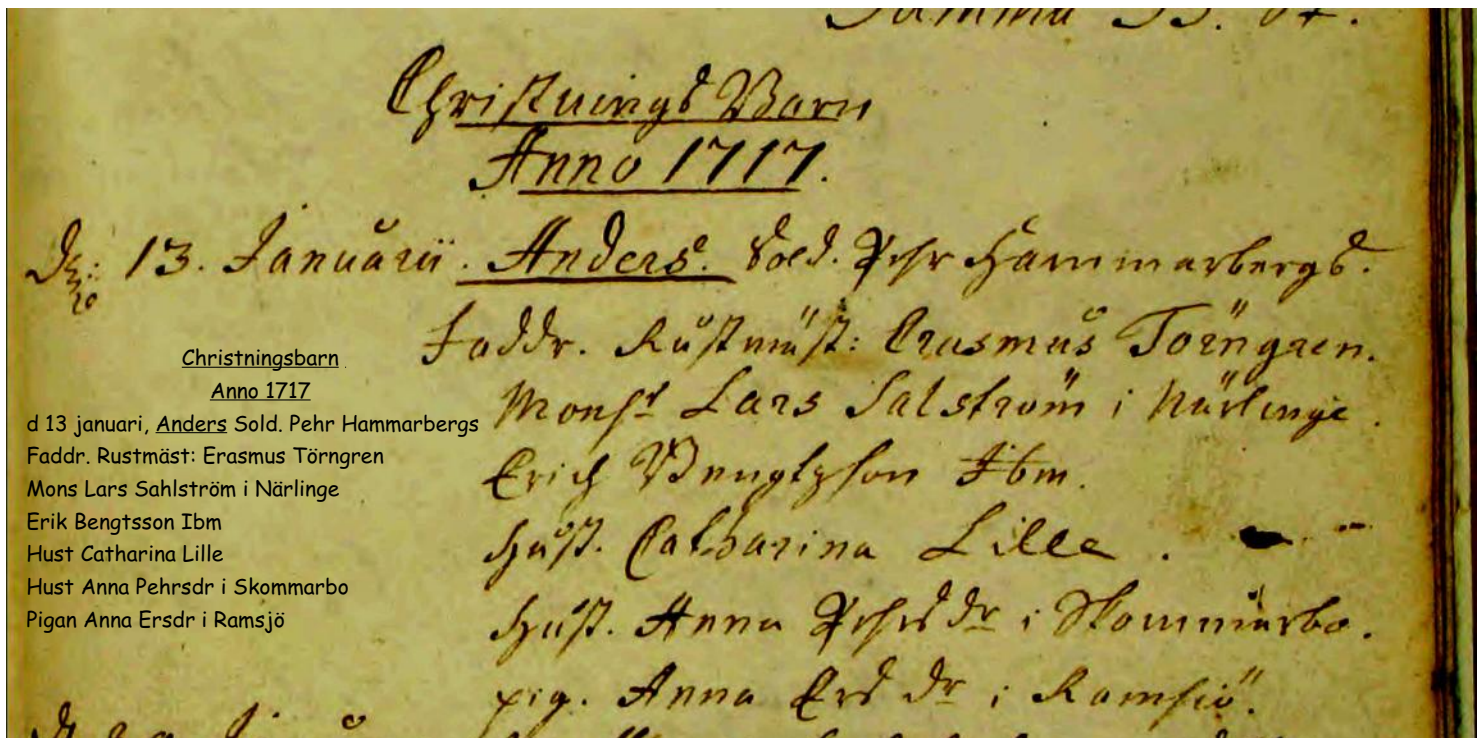 Summa
Christnings Barn
Anno 1717.
13. Januarii. Anders. Sold. Pehr Hammarbergs.
Faddr. Rustmäst: Erasmus Törngren.
Monsr Lars Salström i Närlinge.
Erich Bengtzson Ibm.
Hust. Catharina Lille.
Hust. Anna Pehrsdr i Skommarbo.
pig. Anna Ersdr i Ramsiö.
Christningsbarn
Anno 1717
d 13 januari, Anders Sold. Pehr Hammarbergs
Faddr. Rustmäst: Erasmus Törngren
Mons Lars Sahlström i Närlinge
Erik Bengtsson Ibm
Hust Catharina Lille
Hust Anna Pehrsdr i Skommarbo
Pigan Anna Ersdr i Ramsjö